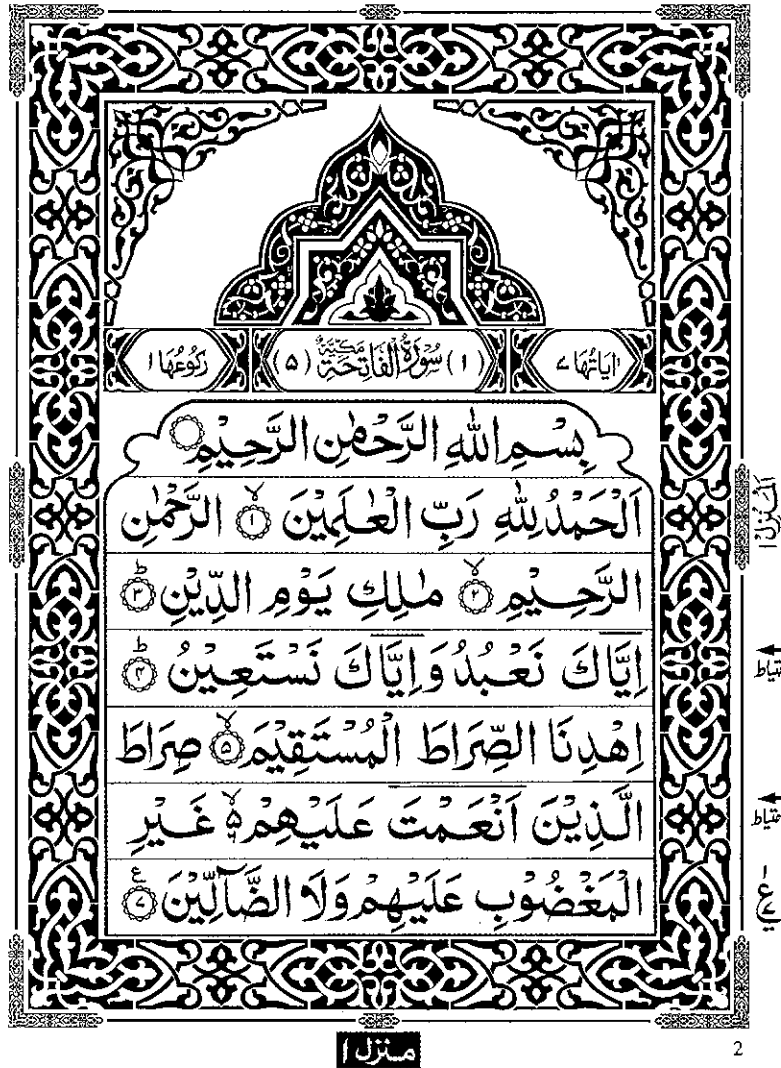 اٰيَاتُهَا ٧ (١) سُوْرَةُ الْفَاتِحَةِ مَكِّيَّةٌ (٥) رُكُوْعُهَا ١
بِسْمِ اللّٰهِ الرَّحْمٰنِ الرَّحِيْمِ
اَلْحَمْدُ لِلّٰهِ رَبِّ الْعٰلَمِيْنَ ۙ‏﴿١﴾ الرَّحْمٰنِ
الرَّحِيْمِ ۙ‏﴿٢﴾ مٰلِكِ يَوْمِ الدِّيْنِ ؕ‏﴿٣﴾
اِيَّاكَ نَعْبُدُ وَاِيَّاكَ نَسْتَعِيْنُ ؕ‏﴿٤﴾
اِهْدِنَا الصِّرَاطَ الْمُسْتَقِيْمَ ۙ‏﴿٥﴾ صِرَاطَ
الَّذِيْنَ اَنْعَمْتَ عَلَيْهِمْ ۙ۬ۦ غَيْرِ
الْمَغْضُوْبِ عَلَيْهِمْ وَلَا الضَّآلِّيْنَ ﴿٧﴾ ع
منزل ١
2